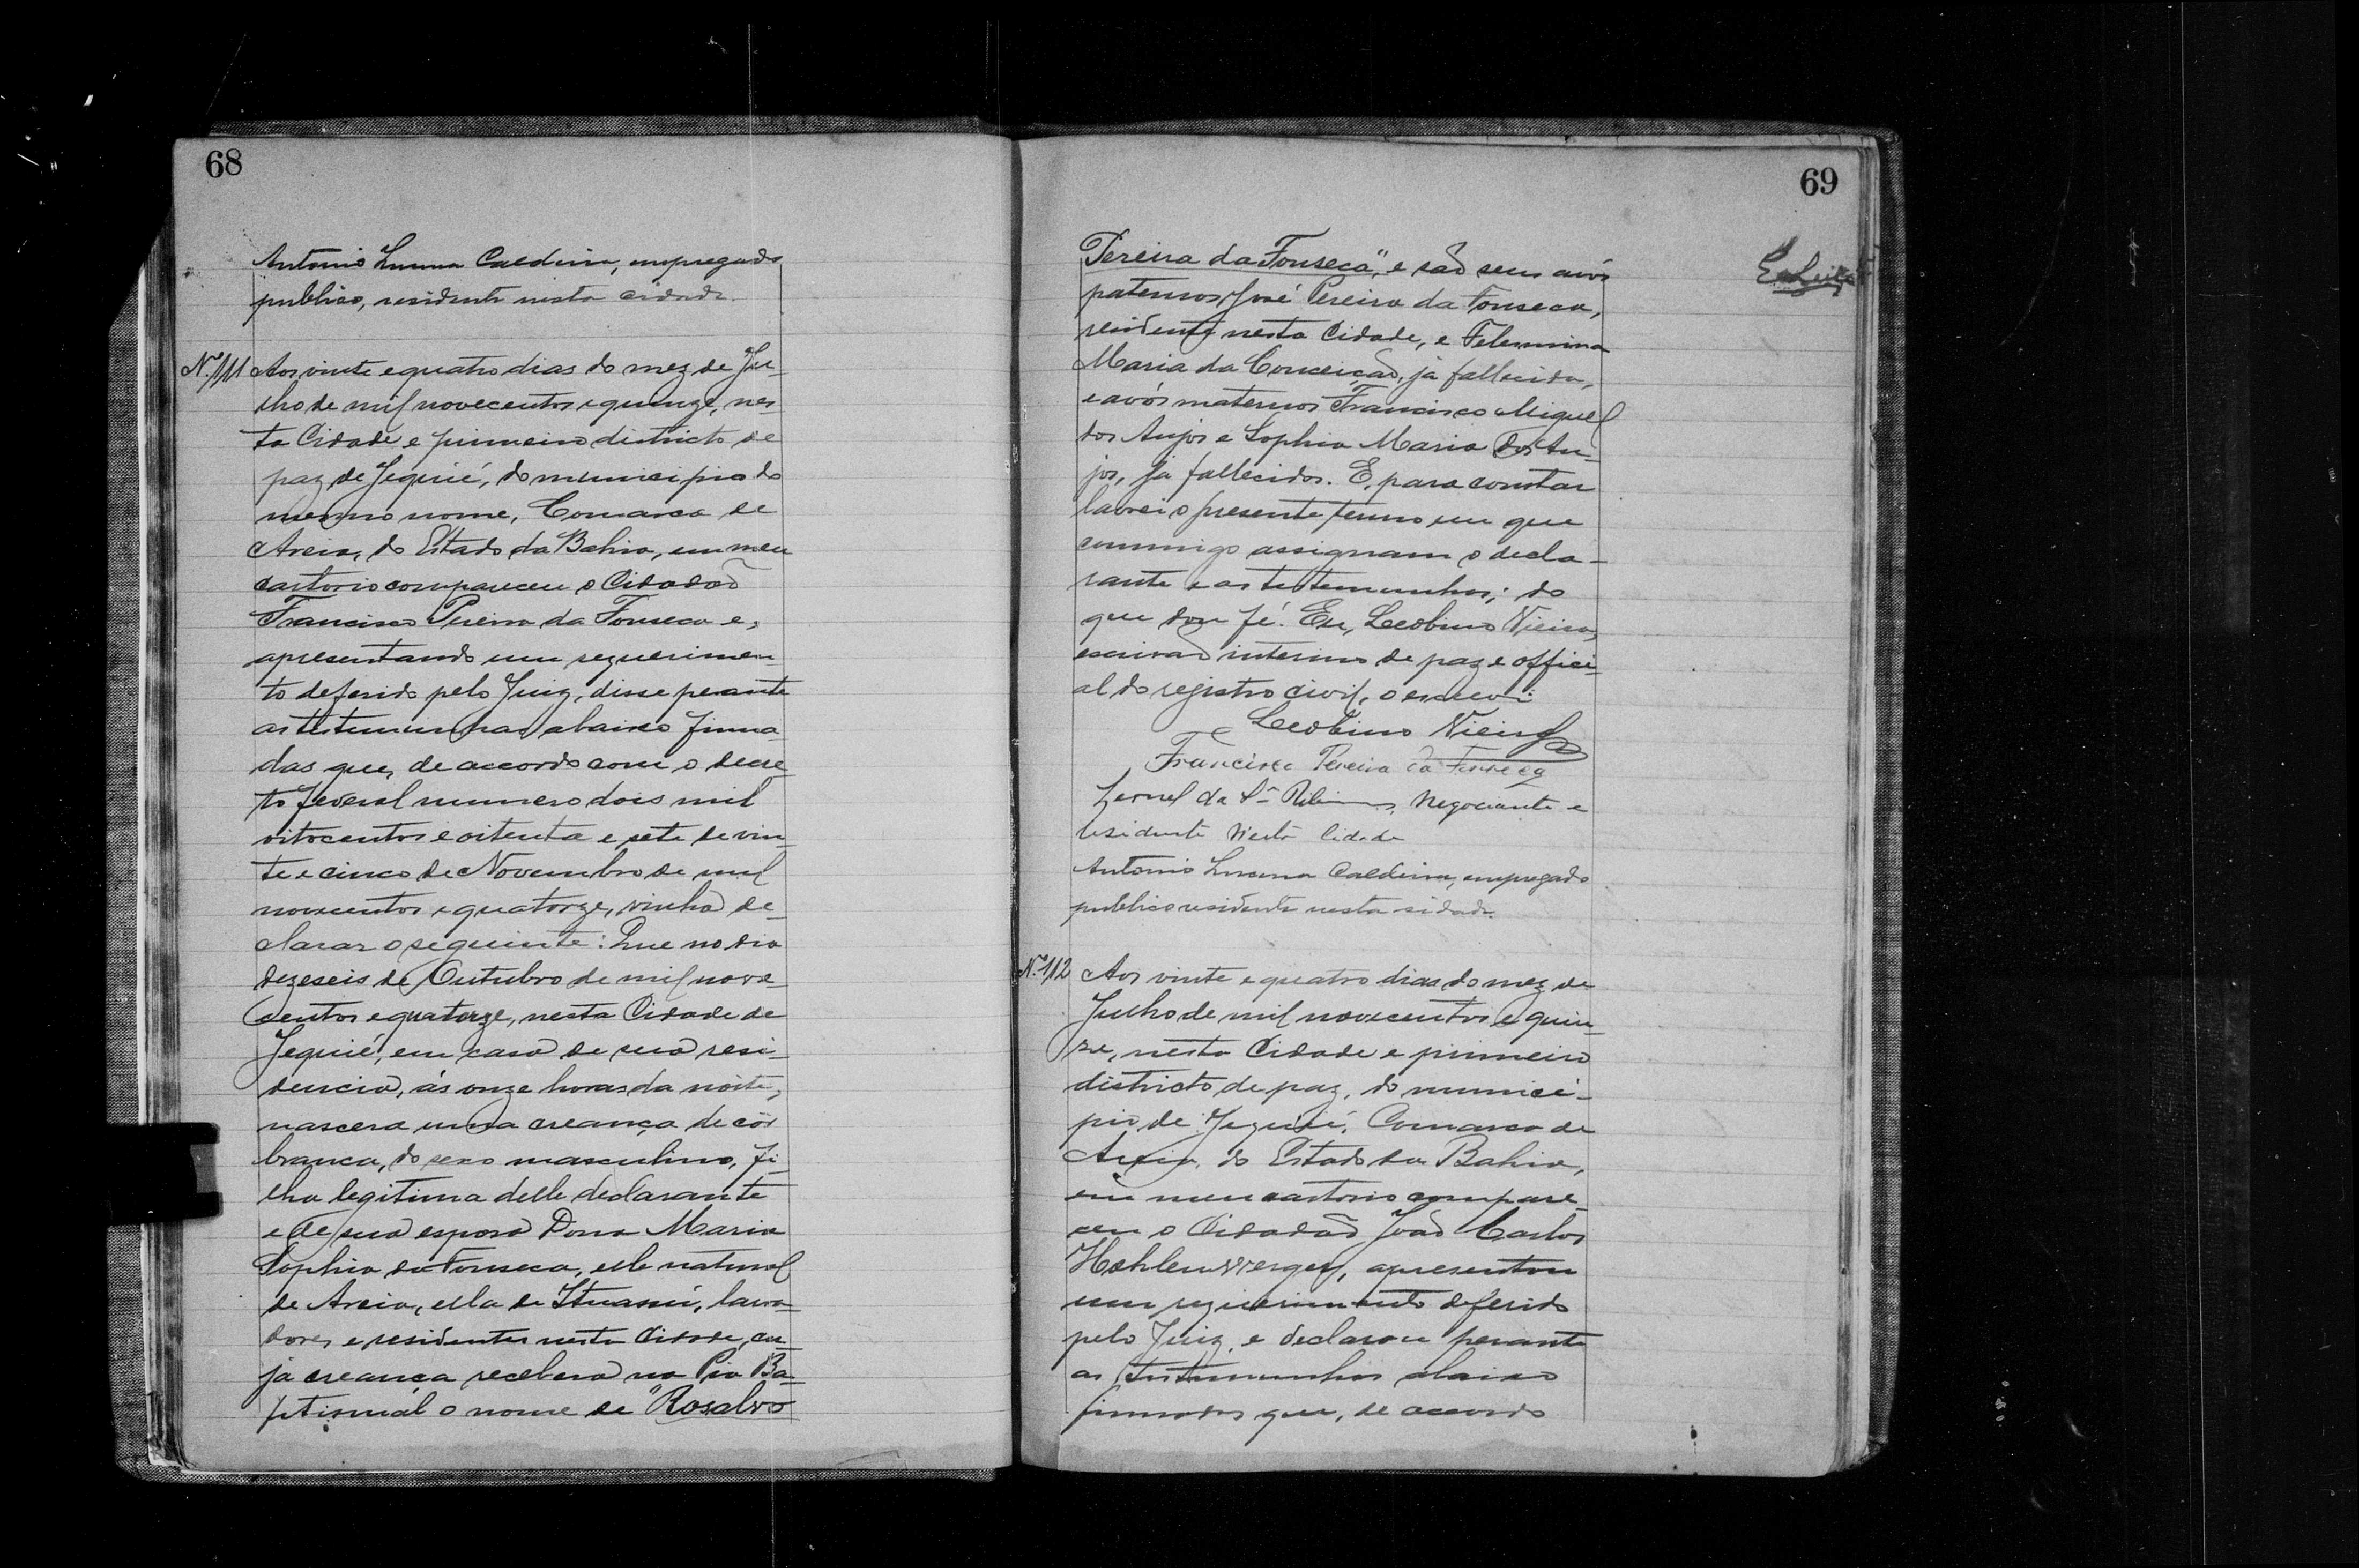 68
Antonio Lucena Caldeira, empregado
publico, residente nesta cidade.
Nº 111 Aos vinte e quatro dias do mez de Ju-
lho de mil novecentos e quinze, nes-
ta Cidade e primeiro districto de
paz de Jequié, do municipio do
mesmo nome, Comarca de
Areia, do Estado da Bahia, em meu
cartorio compareceu o Cidadaõ
Francisco Pereira da Fonseca e,
apresentando um requerimen-
to deferido pelo Juiz, disse perante
as testemunhas abaixo firma-
das que, de accordo com o decre-
to federal numero dois mil
oitocentos e oitenta e sete de vin-
te e cinco de Novembro de mil
novecentos e quatorze, vinha de-
clarar o seguinte: Que no dia
dezeseis de Outubro de mil nove-
centos e quatorze, nesta Cidade de
Jequié, em casa de sua resi-
dencia, ás onze horas da noite,
nascera uma creança de côr
branca, do sexo masculino, fi-
lha legitima delle declarante
e de sua esposa Dona Maria
Sophia da Fonseca, elle natural
de Areia, ella de Ituassú, lavra-
dores e residentes nesta Cidade, cu-
ja creança recebera na Pia Ba-
ptismal o nome de "Rosalvo
69
Pereira da Fonseca", e saõ seus avós
paternos José Pereira da Fonseca,
residente nesta Cidade, e Felesmina
Maria da Conceiçaõ, já fallecida,
e avós maternos Francisco Miguel
dos Anjos e Sophia Maria dos An-
jos, já fallecidos. E, para constar
lavrei o presente termo em que
commigo assignam o decla-
rante e as testemunhas; do
que dou fé. Eu, Leobino Vieira,
escrivaõ interino de paz e offici-
al do registro civil, o escrevi
Leobino Vieira
Francisco Pereira da Fonseca
da Sª Ribeiro, Negociante e
residente Nesta Cidade
Antonio Lucena Caldeira, empregado
publico residente nesta cidade.
Nº 112 Aos vinte e quatro dias do mez de
Julho de mil novecentos e quin-
ze, nesta Cidade e primeiro
districto de paz, do munici-
pio de Jequié, Comarca de
Areia, do Estado da Bahia,
em meu cartorio compare-
ceu o Cidadaõ Joaõ Carlos
apresentou
um requerimento deferido
pelo Juiz, e declarou perante
as testemunhas abaixo
firmadas que, de accordo